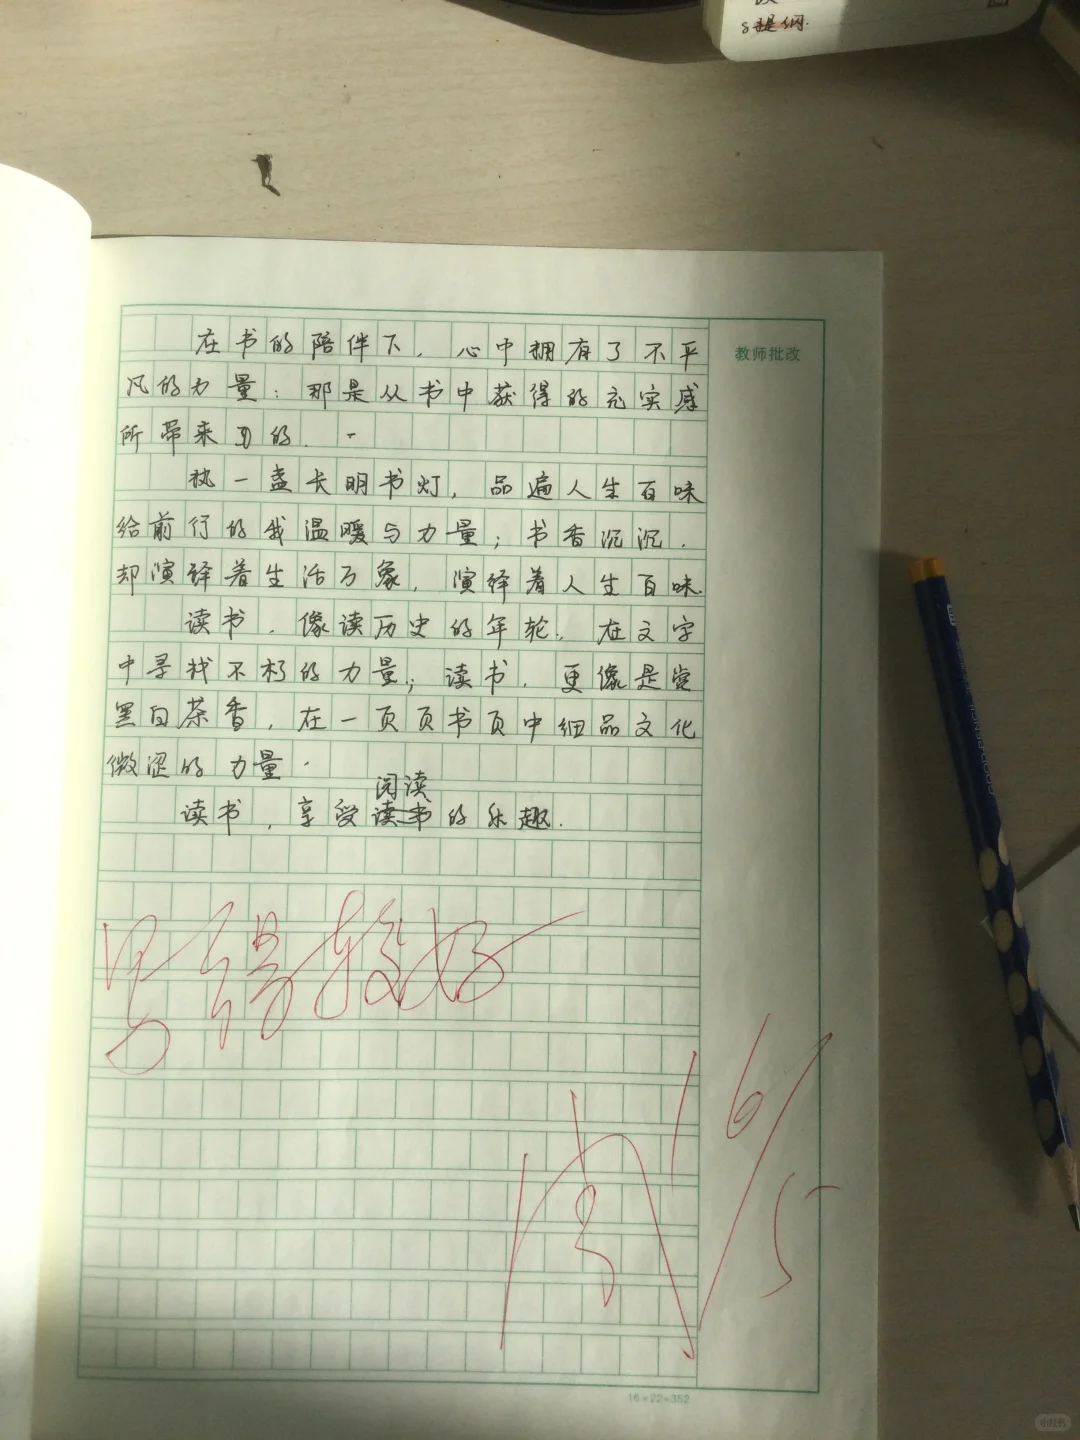 8提纲.
教师批改
在书的陪伴下，心中拥有了不平
凡的力量：那是从书中获得的充实感
所带来的.
执一盏长明书灯，品遍人生百味
给前行的我温暖与力量；书香沉沉，
却演绎着生活万象，演绎着人生百味.
读书，像读历史的年轮，在文字
中寻找不朽的力量；读书，更像是尝
黑白茶香，在一页页书页中细品文化
微涩的力量.
阅读
读书，享受读书的乐趣.
写得较好
周 16/5
16×22=352
小红书